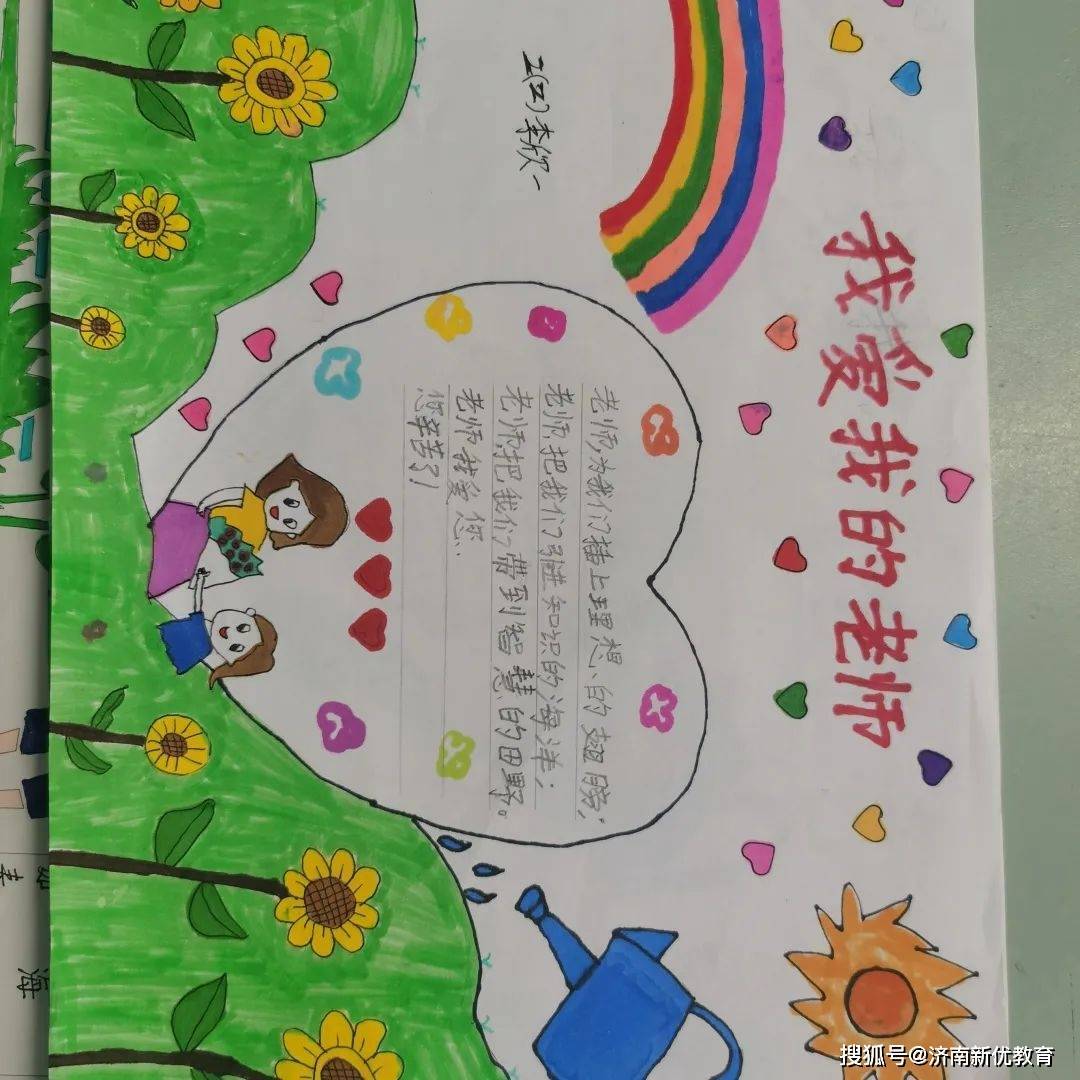 我爱我的老师
李欣一
老师,为我们插上理想的翅膀;
老师把我们引进知识的海洋;
老师把我们带到智慧的田野。
老师我爱您..
您辛苦了!
海
搜狐号@济南新优教育